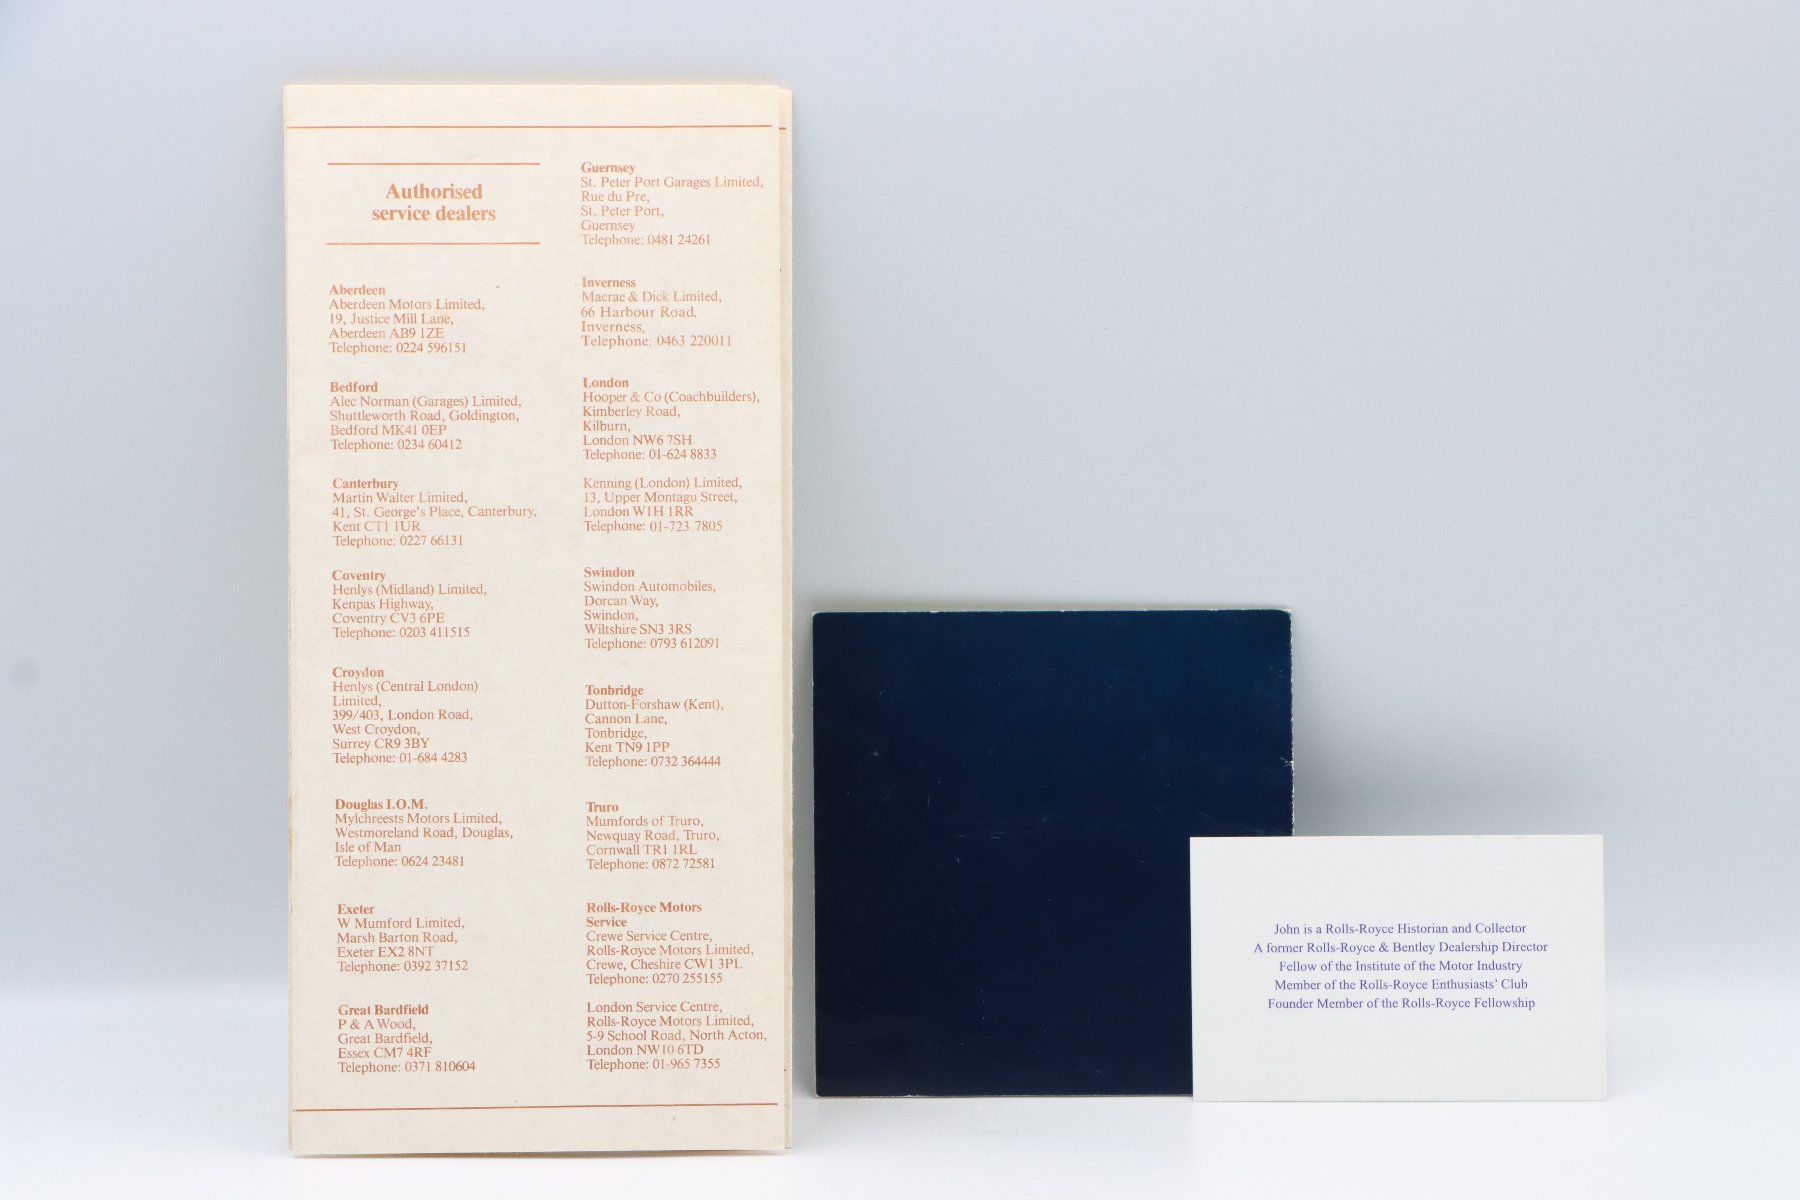 Authorised
service dealers
Aberdeen
Aberdeen Motors Limited,
19, Justice Mill Lane,
Aberdeen AB9 1ZE
Telephone: 0224 596151
Bedford
Alec Norman (Garages) Limited,
Shuttleworth Road, Goldington,
Bedford MK41 0EP
Telephone: 0234 60412
Canterbury
Martin Walter Limited,
41, St. George's Place, Canterbury,
Kent CT1 1UR
Telephone: 0227 66131
Coventry
Henlys (Midland) Limited,
Kenpas Highway,
Coventry CV3 6PE
Telephone: 0203 411515
Croydon
Henlys (Central London)
Limited,
399/403, London Road,
West Croydon,
Surrey CR9 3BY
Telephone: 01-684 4283
Douglas I.O.M.
Mylchreests Motors Limited,
Westmoreland Road, Douglas,
Isle of Man
Telephone: 0624 23481
Exeter
W Mumford Limited,
Marsh Barton Road,
Exeter EX2 8NT
Telephone: 0392 37152
Great Bardfield
P & A Wood,
Great Bardfield,
Essex CM7 4RF
Telephone: 0371 810604
Guernsey
St. Peter Port Garages Limited,
Rue du Pre,
St. Peter Port,
Guernsey
Telephone: 0481 24261
Inverness
Macrae & Dick Limited,
66 Harbour Road,
Inverness,
Telephone: 0463 220011
London
Hooper & Co (Coachbuilders),
Kimberley Road,
Kilburn,
London NW6 7SH
Telephone: 01-624 8833
Kenning (London) Limited,
13, Upper Montagu Street,
London W1H 1RR
Telephone: 01-723 7805
Swindon
Swindon Automobiles,
Dorcan Way,
Swindon,
Wiltshire SN3 3RS
Telephone: 0793 612091
Tonbridge
Dutton-Forshaw (Kent),
Cannon Lane,
Tonbridge,
Kent TN9 1PP
Telephone: 0732 364444
Truro
Mumfords of Truro,
Newquay Road, Truro,
Cornwall TR1 1RL
Telephone: 0872 72581
Rolls-Royce Motors
Service
Crewe Service Centre,
Rolls-Royce Motors Limited,
Crewe, Cheshire CW1 3PL
Telephone: 0270 255155
London Service Centre,
Rolls-Royce Motors Limited,
5-9 School Road, North Acton,
London NW10 6TD
Telephone: 01-965 7355
John is a Rolls-Royce Historian and Collector
A former Rolls-Royce & Bentley Dealership Director
Fellow of the Institute of the Motor Industry
Member of the Rolls-Royce Enthusiasts' Club
Founder Member of the Rolls-Royce Fellowship